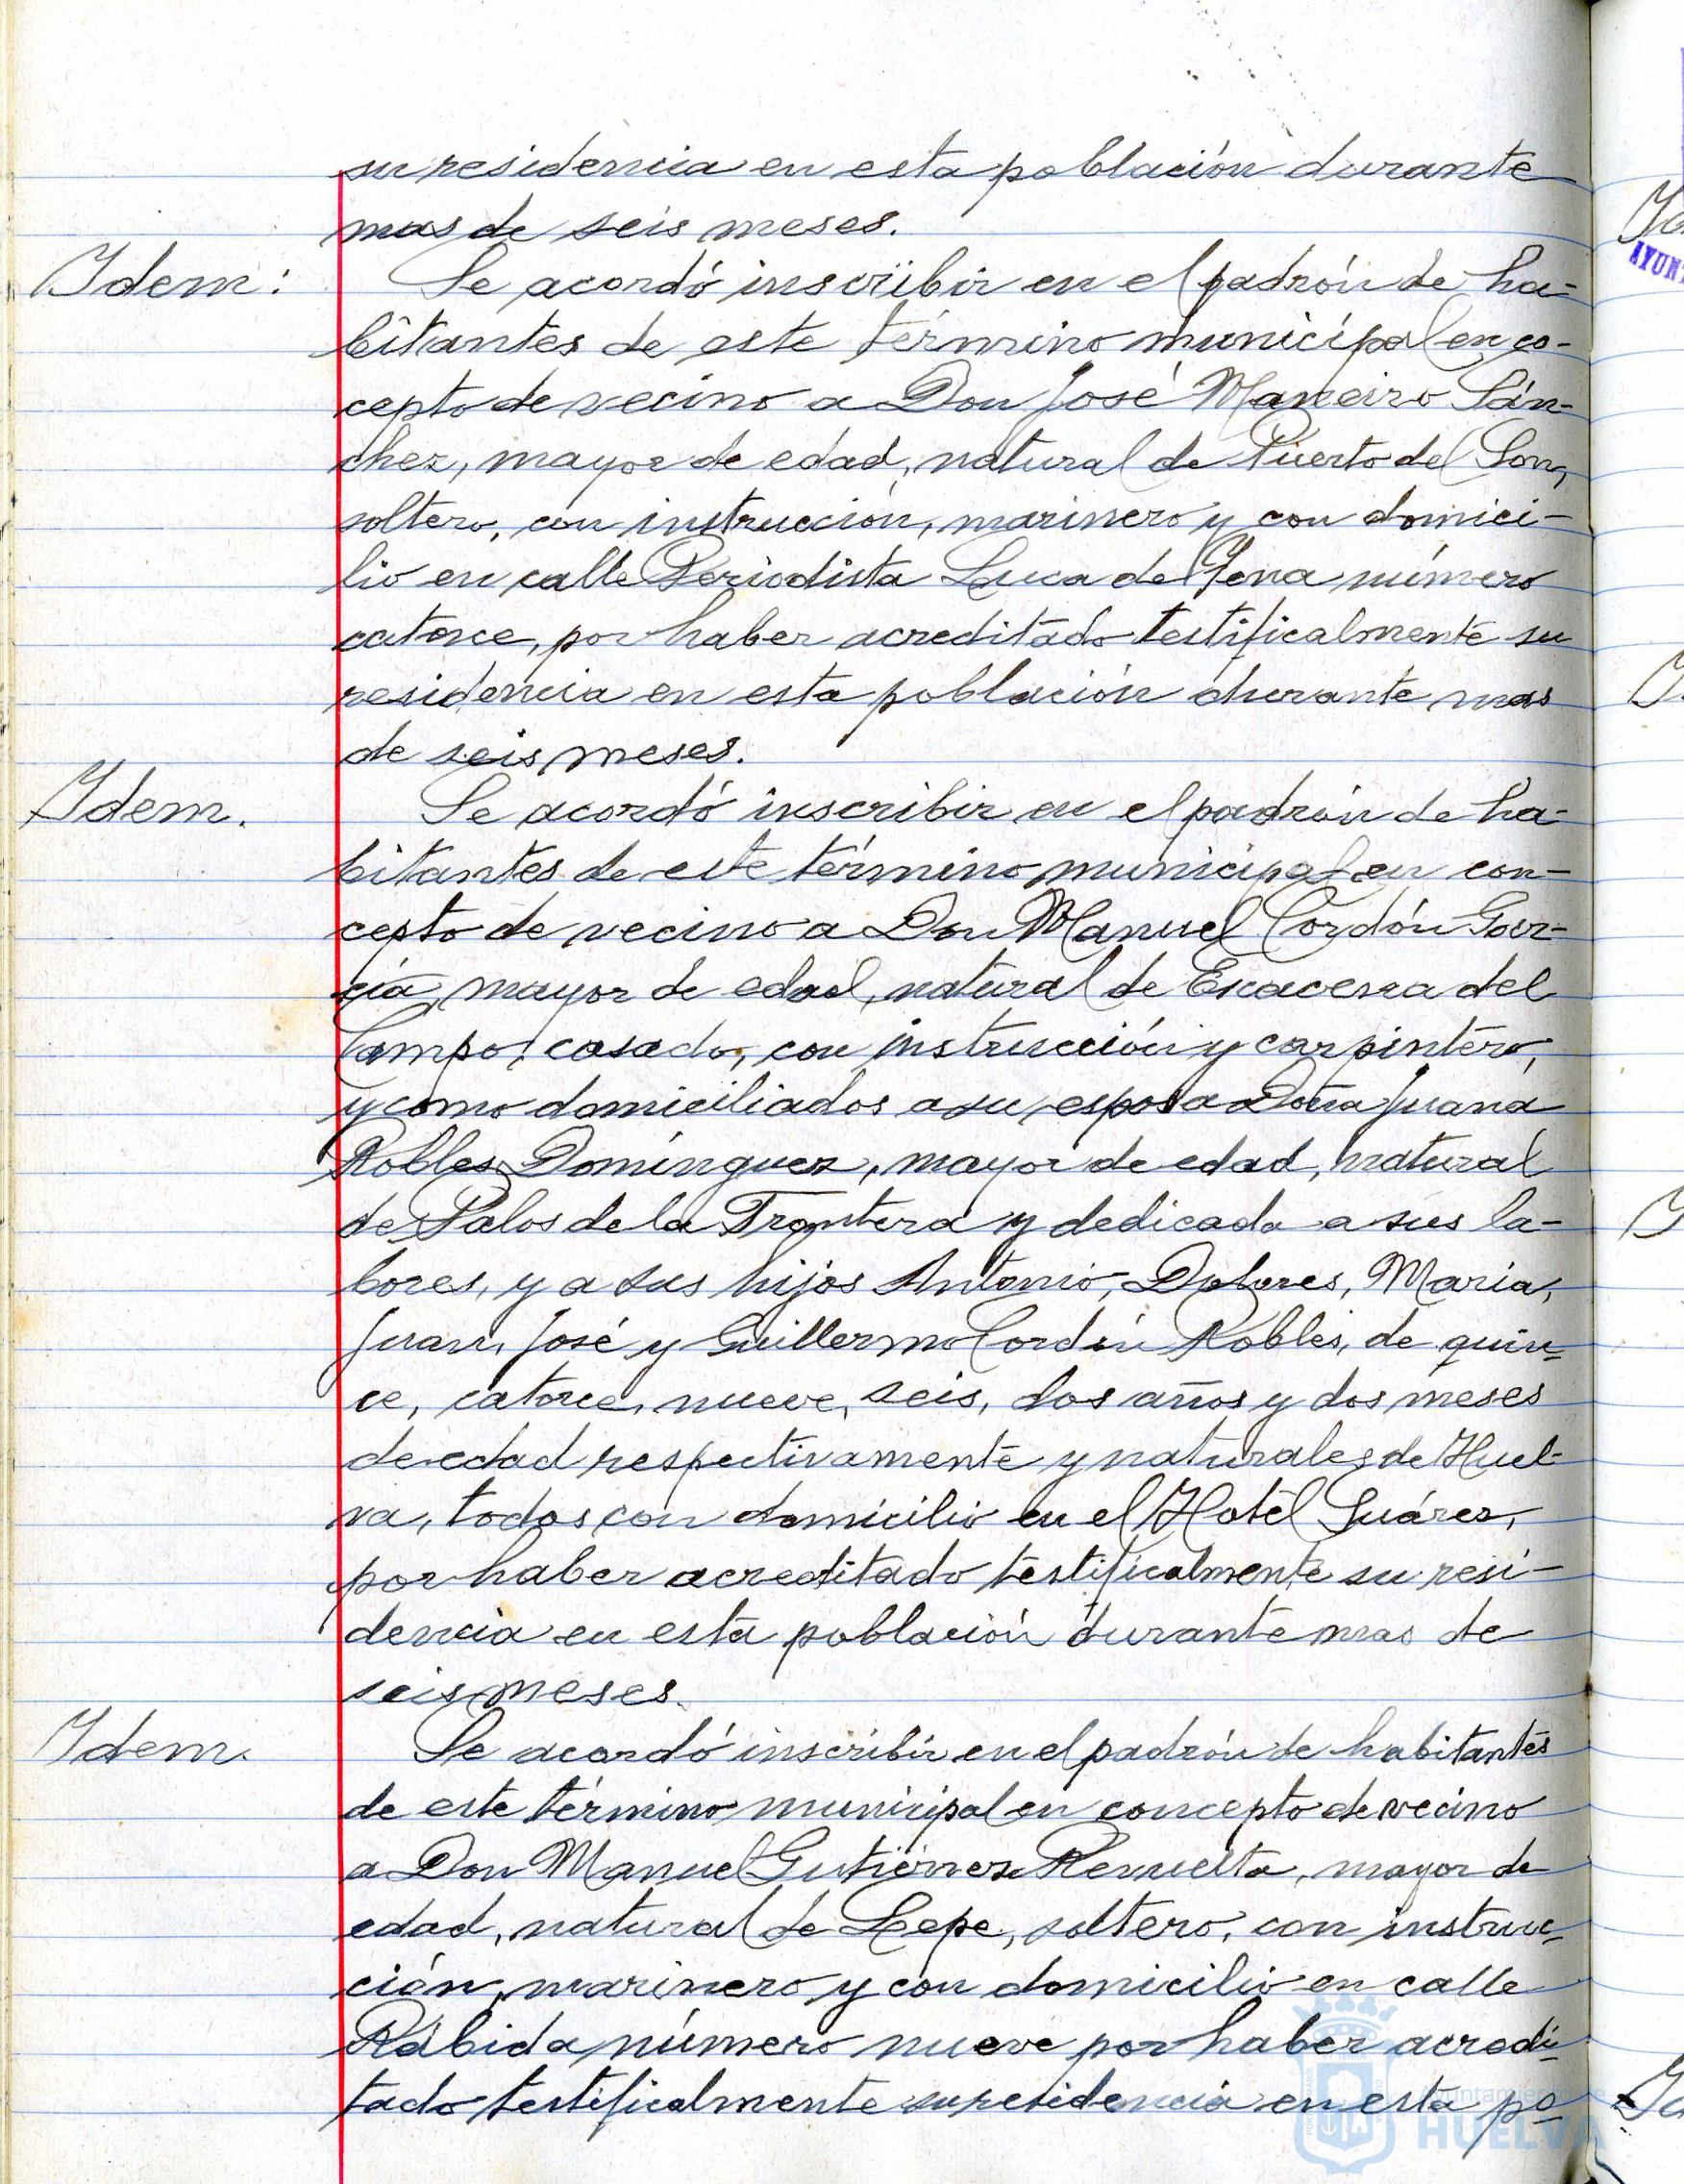 su residencia en esta población durante
mas de seis meses.
Idem:
Se acordó inscribir en el padrón de ha-
bitantes de este término municipal en co-
cepto de vecino a Don José Maneiro Sán-
chez, mayor de edad, natural de Puerto del Son,
soltero, con instrucción, marinero y con domici-
lio en calle Periodista Luca de Tena número
catorce, por haber acreditado testificalmente su
residencia en esta población durante mas
de seis meses.
Idem.
Se acordó inscribir en el padrón de ha-
bitantes de este término municipal en con-
cepto de vecino a Don Manuel Cordón Gar-
cía, mayor de edad, natural de Escacena del
Campo, casado, con instrucción y carpintero,
y como domiciliados a su esposa Doña Juana
Robles Domínguez, mayor de edad, natural
de Palos de la Frontera y dedicada a sus la-
bores, y a sus hijos Antonio, Dolores, Maria,
Juan, José y Guillermo Cordón Robles, de quin-
ce, catorce, nueve, seis, dos años y dos meses
de edad respectivamente y naturales de Huel-
va, todos con domicilio en el Hotel Suárez,
por haber acreditado testificalmente su resi-
dencia en esta población durante mas de
seis meses.
Idem.
Se acordó inscribir en el padrón de habitantes
de este término municipal en concepto de vecino
a Don Manuel Gutiérrez Revuelta, mayor de
edad, natural de Lepe, soltero, con instruc-
ción, marinero y con domicilio en calle
Rábida número nueve por haber acredi-
tado testificalmente su residencia en esta po-
Ayuntamiento de
HUELVA